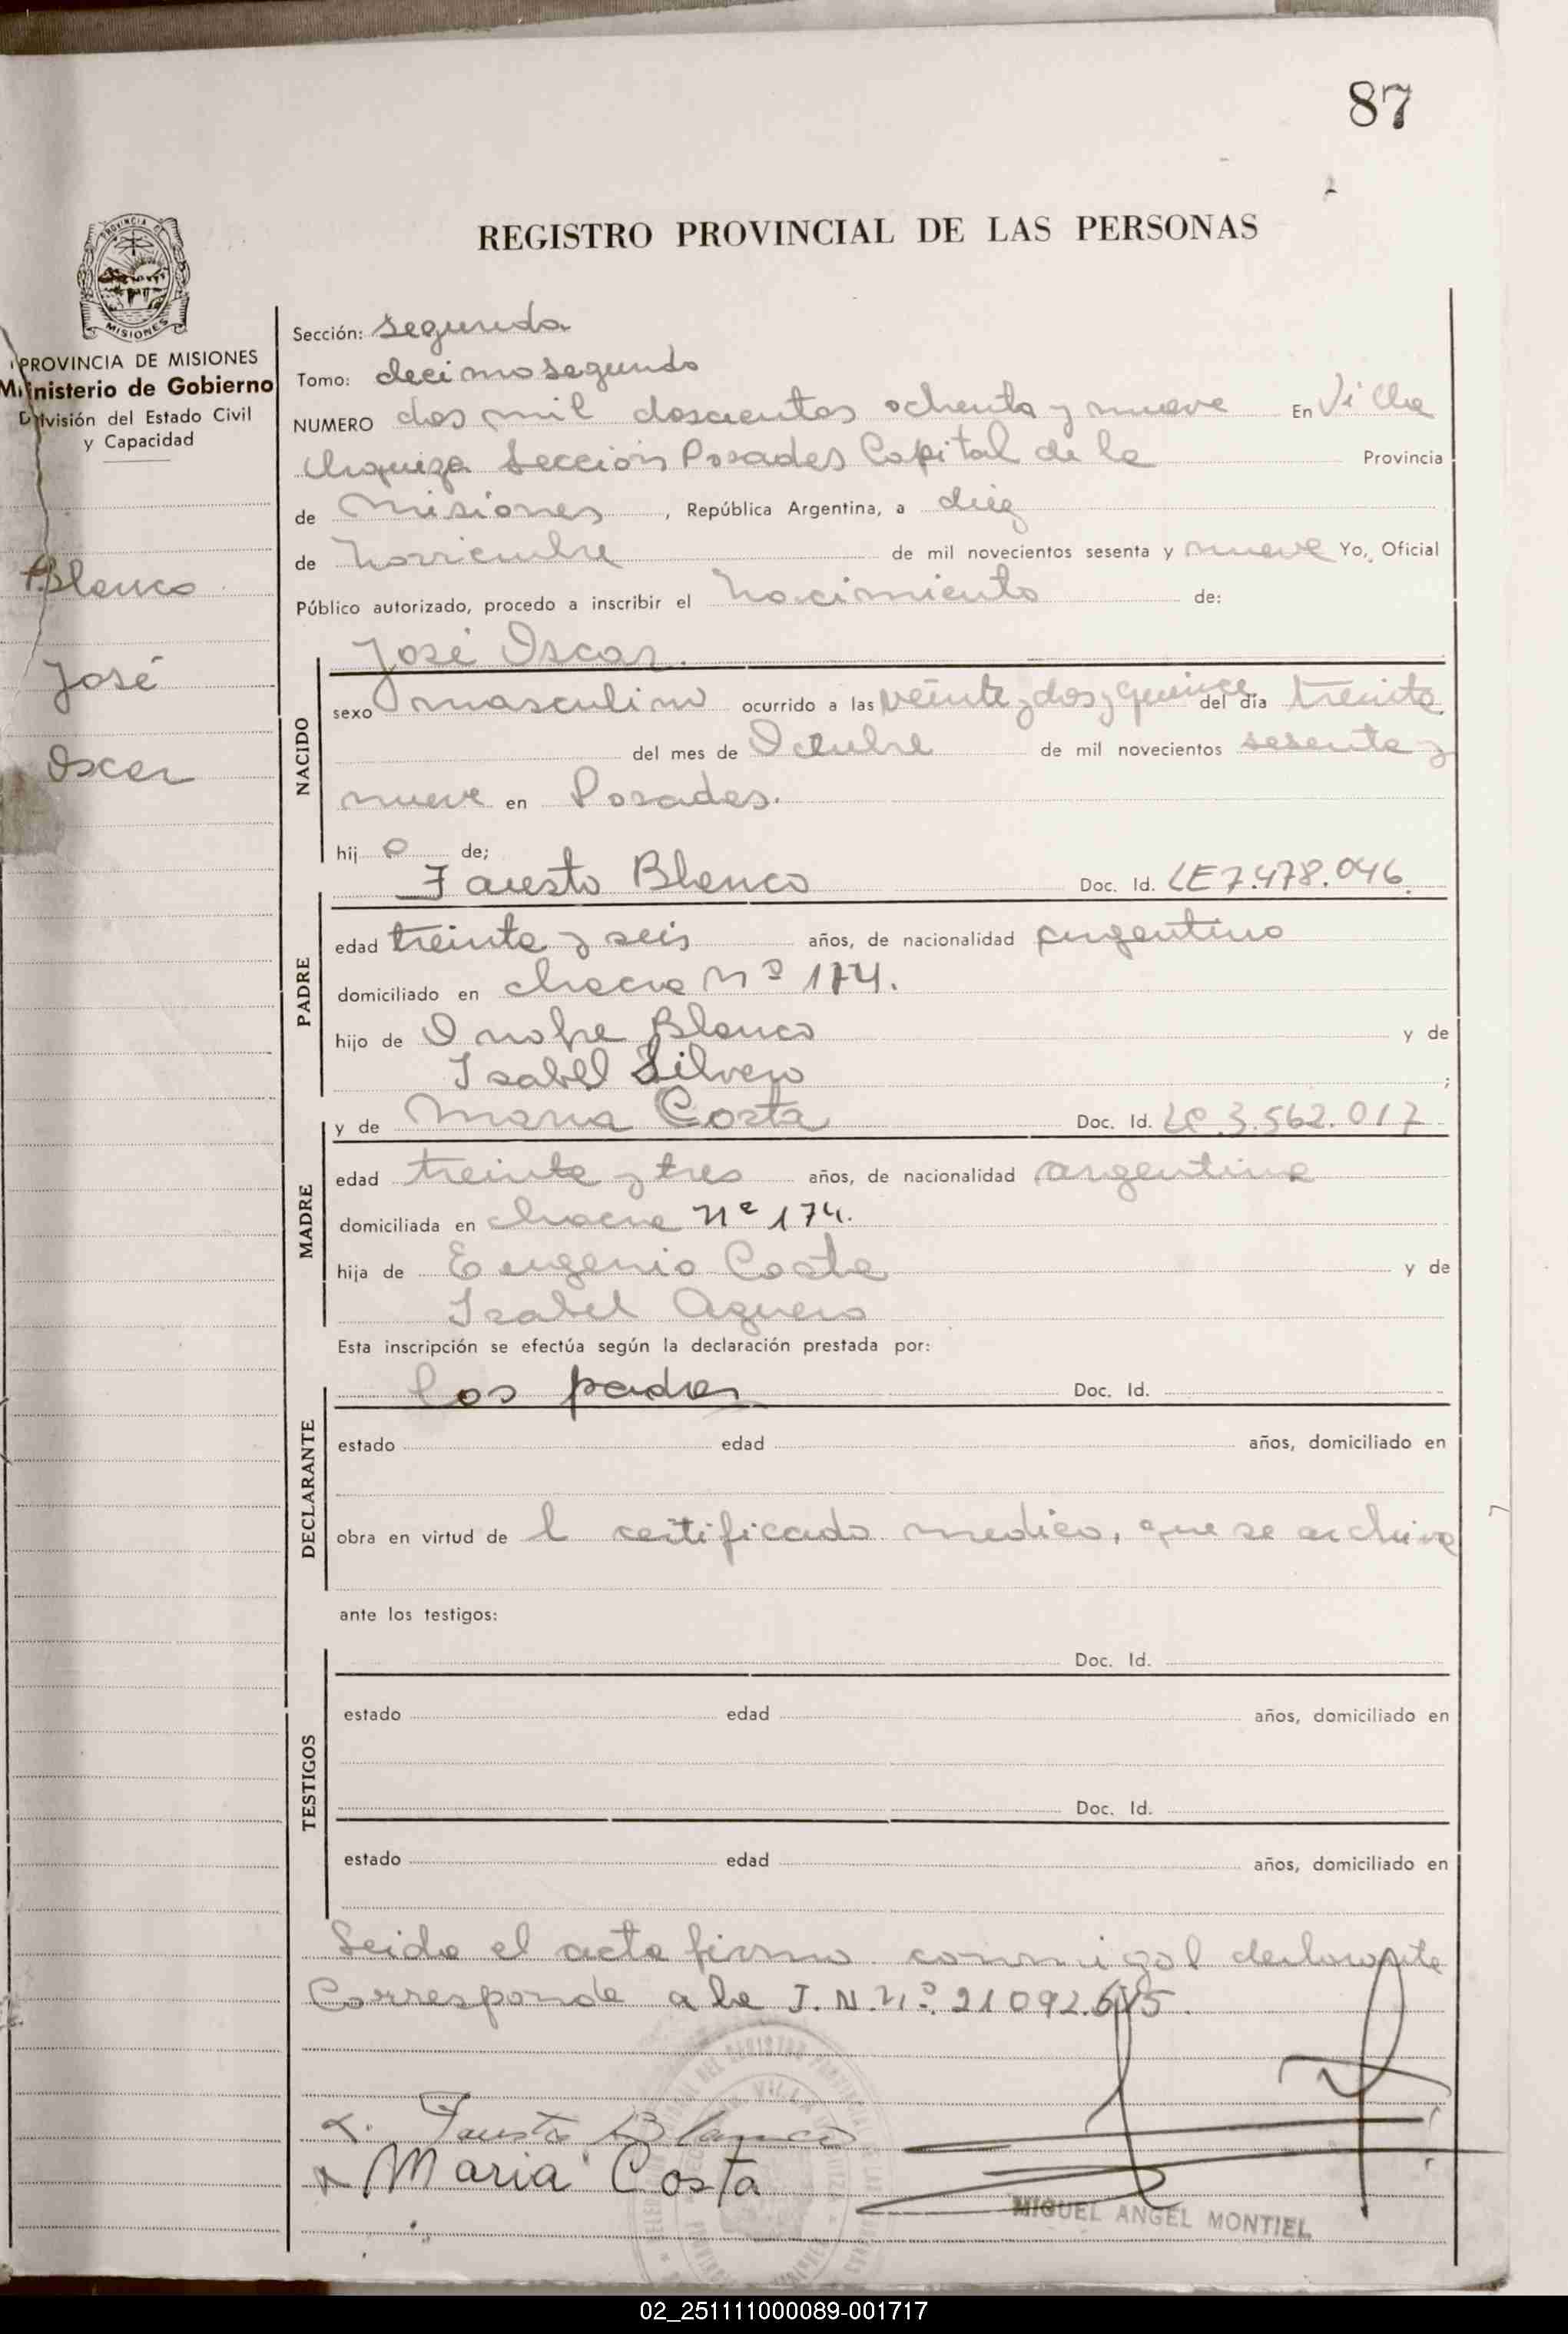 87
REGISTRO PROVINCIAL DE LAS PERSONAS
PROVINCIA
MISIONES
PROVINCIA DE MISIONES
Ministerio de Gobierno
División del Estado Civil
y Capacidad
Blanco
José
Oscar
Sección: segunda
Tomo: decimosegundo
NUMERO dos mil doscientos ochenta y nueve En Villa
Urquiza Sección Posadas Capital de la Provincia
de Misiones, República Argentina, a diez
de noviembre de mil novecientos sesenta y nueve Yo, Oficial
Público autorizado, procedo a inscribir el nacimiento de:
José Oscar.
NACIDO
sexo masculino ocurrido a las veinte y dos y quince del día treinta
del mes de Octubre de mil novecientos sesenta y
nueve en Posadas.
hijo de;
Fausto Blanco Doc. Id. LE 7.478.046
PADRE
edad treinta y seis años, de nacionalidad argentino
domiciliado en chacra Nº 174.
hijo de Onofre Blanco y de
Isabel Silvero ;
y de Maria Costa Doc. Id. LC 3.562.017
MADRE
edad treinta y tres años, de nacionalidad argentina
domiciliada en chacra Nº 174.
hija de Eugenio Costa y de
Isabel Aguero
Esta inscripción se efectúa según la declaración prestada por:
los padres Doc. Id.
DECLARANTE
estado edad años, domiciliado en
obra en virtud de l certificado medico, que se archiva
ante los testigos:
Doc. Id.
TESTIGOS
estado edad años, domiciliado en
Doc. Id.
estado edad años, domiciliado en
Leida el acta firma conmigo l declarante
Corresponde a la I.N.Nº. 21092.615.
Fausto Blanco
Maria Costa
MIGUEL ANGEL MONTIEL
02_251111000089-001717